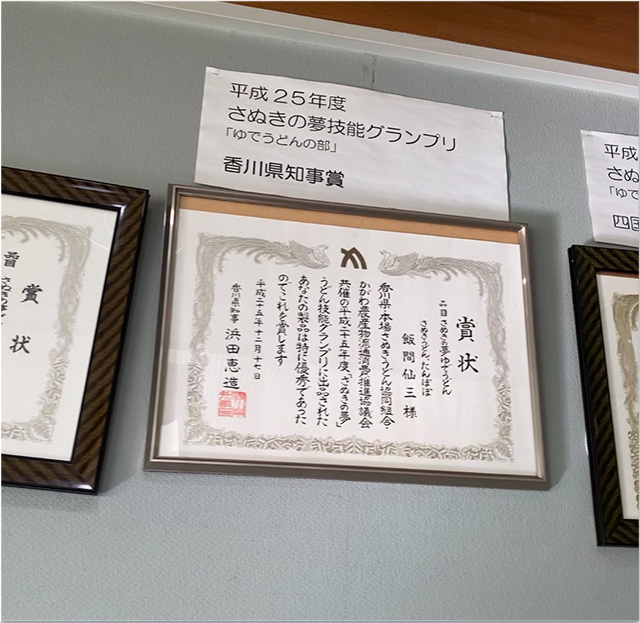 平成25年度
さぬきの夢技能グランプリ
「ゆでうどんの部」
香川県知事賞
賞状
品目 さぬきの夢ゆでうどん
さぬきうどん たんぽぽ
飯間仙三様
香川県・本場さぬきうどん協同組合・
かがわ農産物流通消費推進協議会
共催の平成二十五年度「さぬきの夢」
うどん技能グランプリに出品された
あなたの製品は特に優秀であった
のでこれを賞します
平成二十五年十二月十七日
香川県知事 浜田恵造
賞状
平成
さぬ
「ゆで
四国